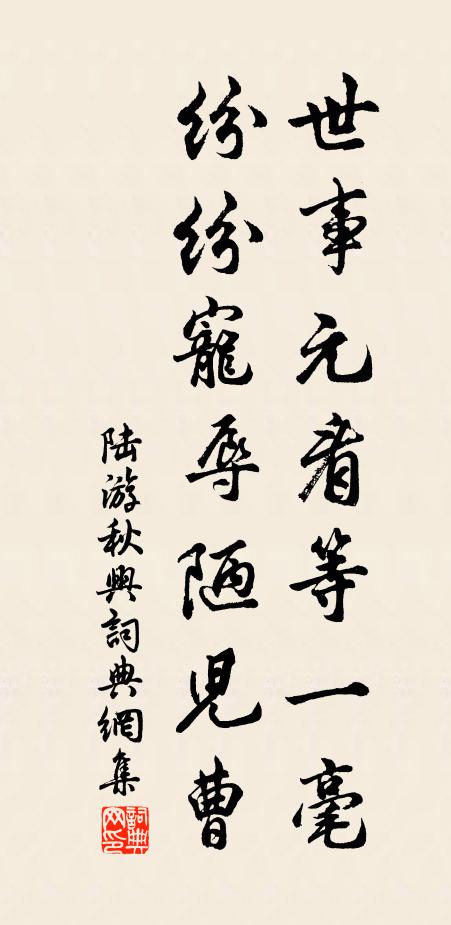 世事元看等一毫
紛紛寵辱陋児曹
陆游秋興詞典網集
詞典
网印